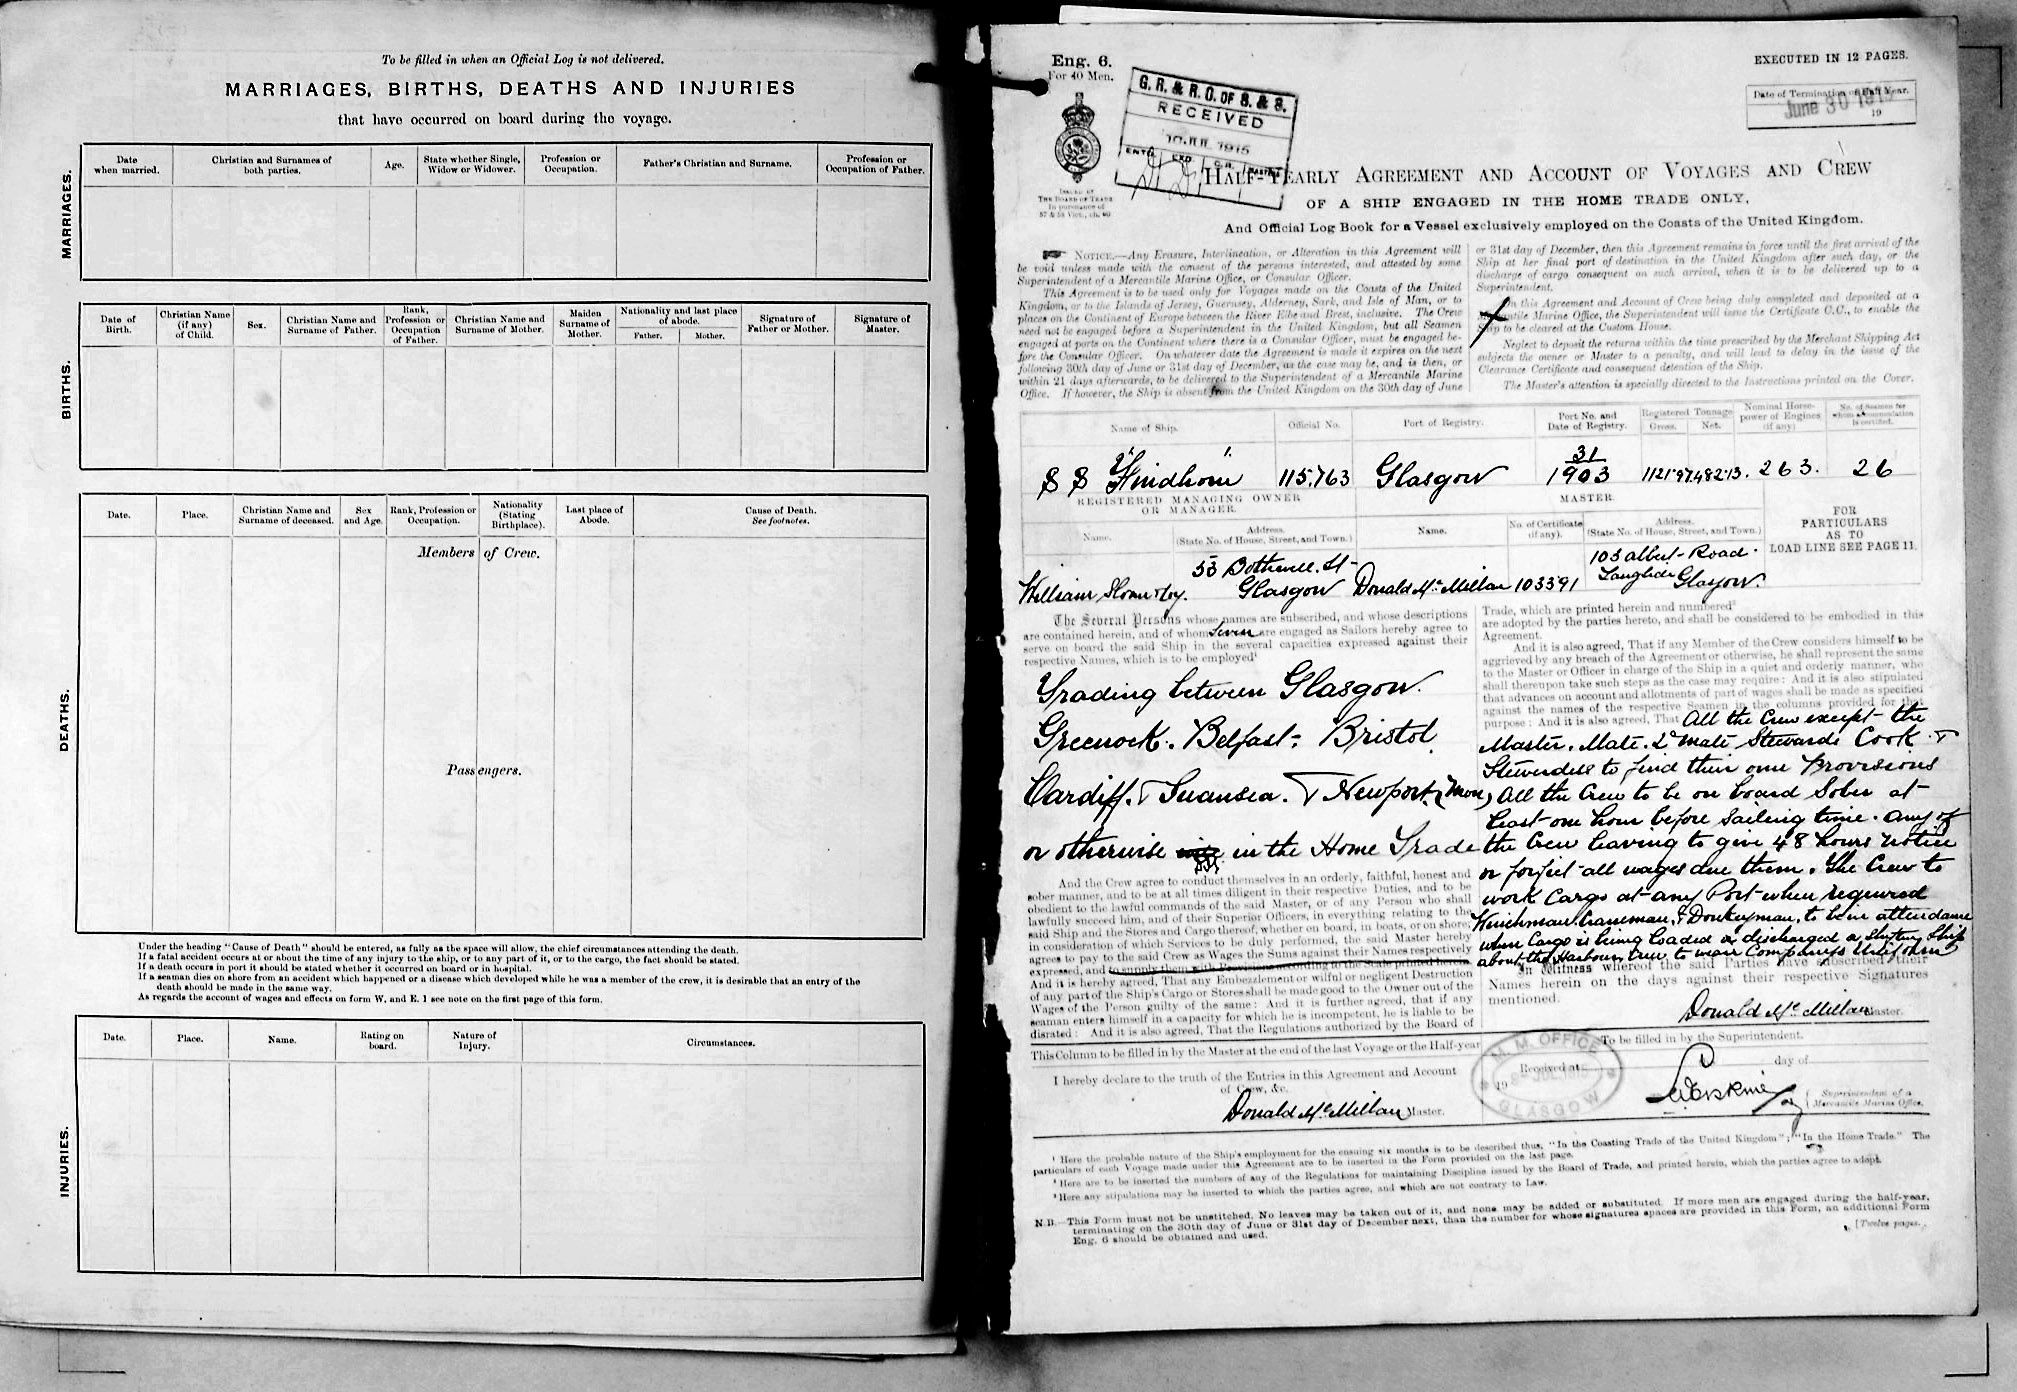 To be filled in when an Official Log is not delivered.
MARRIAGES, BIRTHS, DEATHS AND INJURIES
that have occurred on board during the voyage.
MARRIAGES.
Date when married.
Christian and Surnames of both parties.
Age.
State whether Single, Widow or Widower.
Profession or Occupation.
Father's Christian and Surname.
Profession or Occupation of Father.
BIRTHS.
Date of Birth.
Christian Name (if any) of Child.
Sex.
Christian Name and Surname of Father.
Rank, Profession or Occupation of Father.
Christian Name and Surname of Mother.
Maiden Surname of Mother.
Nationality and last place of abode.
Father.
Mother.
Signature of Father or Mother.
Signature of Master.
DEATHS.
Date.
Place.
Christian Name and Surname of deceased.
Sex and Age.
Rank, Profession or Occupation.
Nationality (Stating Birthplace).
Last place of Abode.
Cause of Death. See footnotes.
Members of Crew.
Passengers.
Under the heading "Cause of Death" should be entered, as fully as the space will allow, the chief circumstances attending the death.
If a fatal accident occurs at or about the time of any injury to the ship, or to any part of it, or to the cargo, the fact should be stated.
If a death occurs in port it should be stated whether it occurred on board or in hospital.
If a seaman dies on shore from an accident which happened or a disease which developed while he was a member of the crew, it is desirable that an entry of the
death should be made in the same way.
As regards the account of wages and effects on form W. and E. 1 see note on the first page of this form.
INJURIES.
Date.
Place.
Name.
Rating on board.
Nature of Injury.
Circumstances.
Eng. 6.
For 40 Men.
ISSUED BY
THE BOARD OF TRADE
In pursuance of
57 & 58 Vict., ch. 60
G. R. & R. O. OF S. & S.
RECEIVED
10 JUL 1915
EXECUTED IN 12 PAGES.
Date of Termination of Half Year.
June 30 1915
19
HALF-YEARLY AGREEMENT AND ACCOUNT OF VOYAGES AND CREW
OF A SHIP ENGAGED IN THE HOME TRADE ONLY,
And Official Log Book for a Vessel exclusively employed on the Coasts of the United Kingdom.
NOTICE.—Any Erasure, Interlineation, or Alteration in this Agreement will
be void unless made with the consent of the persons interested, and attested by some
Superintendent of a Mercantile Marine Office, or Consular Officer.
This Agreement is to be used only for Voyages made on the Coasts of the United
Kingdom, or to the Islands of Jersey, Guernsey, Alderney, Sark, and Isle of Man, or to
places on the Continent of Europe between the River Elbe and Brest, inclusive. The Crew
need not be engaged before a Superintendent in the United Kingdom, but all Seamen
engaged at ports on the Continent where there is a Consular Officer, must be engaged be-
fore the Consular Officer. On whatever date the Agreement is made it expires on the next
following 30th day of June or 31st day of December, as the case may be, and is then, or
within 21 days afterwards, to be delivered to the Superintendent of a Mercantile Marine
Office. If however, the Ship is absent from the United Kingdom on the 30th day of June
or 31st day of December, then this Agreement remains in force until the first arrival of the
Ship at her final port of destination in the United Kingdom after such day, or the
discharge of cargo consequent on such arrival, when it is to be delivered up to a
Superintendent.
On this Agreement and Account of Crew being duly completed and deposited at a
Mercantile Marine Office, the Superintendent will issue the Certificate C.C., to enable the
Ship to be cleared at the Custom House.
Neglect to deposit the returns within the time prescribed by the Merchant Shipping Act
subjects the owner or Master to a penalty, and will lead to delay in the issue of the
Clearance Certificate and consequent detention of the Ship.
The Master's attention is specially directed to the Instructions printed on the Cover.
Name of Ship.
Official No.
Port of Registry.
Port No. and Date of Registry.
Registered Tonnage
Gross.
Net.
Nominal Horse-power of Engines (if any)
No. of Seamen for whom accommodation is certified.
S S "Findhorn" 115,763 Glasgow 31/1903 1121.97 482.13. 263. 26
REGISTERED MANAGING OWNER OR MANAGER.
MASTER.
Name.
Address. (State No. of House, Street, and Town.)
Name.
No. of Certificate (if any).
Address. (State No. of House, Street, and Town.)
FOR PARTICULARS AS TO LOAD LINE SEE PAGE 11.
53 Bothwell St
103 Albert Road
William Glasgow Donald McMillan 103391 Langside Glasgow.
The Several Persons whose names are subscribed, and whose descriptions
are contained herein, and of whom Seven are engaged as Sailors hereby agree to
serve on board the said Ship in the several capacities expressed against their
respective Names, which is to be employed¹
Trading between Glasgow.
Greenock. Belfast, Bristol.
Cardiff. & Swansea. & Newport (Mon)
or otherwise in the Home Trade
And the Crew agree to conduct themselves in an orderly, faithful, honest and
sober manner, and to be at all times diligent in their respective Duties, and to be
obedient to the lawful commands of the said Master, or of any Person who shall
lawfully succeed him, and of their Superior Officers, in everything relating to the
said Ship and the Stores and Cargo thereof, whether on board, in boats, or on shore;
in consideration of which Services to be duly performed, the said Master hereby
agrees to pay to the said Crew as Wages the Sums against their Names respectively
expressed, and to supply them with Provisions according to the Scale printed herein
And it is hereby agreed, That any Embezzlement or wilful or negligent Destruction
of any part of the Ship's Cargo or Stores shall be made good to the Owner out of the
Wages of the Person guilty of the same: And it is further agreed, that if any
seaman enters himself in a capacity for which he is incompetent, he is liable to be
disrated: And it is also agreed, That the Regulations authorized by the Board of
Trade, which are printed herein and numbered²
are adopted by the parties hereto, and shall be considered to be embodied in this
Agreement.
And it is also agreed, That if any Member of the Crew considers himself to be
aggrieved by any breach of the Agreement or otherwise, he shall represent the same
to the Master or Officer in charge of the Ship in a quiet and orderly manner, who
shall thereupon take such steps as the case may require: And it is also stipulated
that advances on account and allotments of part of wages shall be made as specified
against the names of the respective Seamen in the columns provided for that
purpose: And it is also agreed, That All the Crew except the
Master. Mate. 2d Mate Stewards Cook &
Stewardess to find their own Provisions
All the Crew to be on board Sober at
least one hour before Sailing time. Any of
the Crew leaving to give 48 hours notice
or forfeit all wages due them. The Crew to
work Cargo at any Port when required
Winchman Craneman, & Donkeyman, to be in attendance
when Cargo is being loaded or discharged or Shifting Ship
about the Harbour, Crew to wear Companys Uniform
In Witness whereof the said Parties have subscribed their
Names herein on the days against their respective Signatures
mentioned.
Donald McMillan Master.
This Column to be filled in by the Master at the end of the last Voyage or the Half-year
I hereby declare to the truth of the Entries in this Agreement and Account
of Crew, &c.
Donald McMillan Master.
To be filled in by the Superintendent.
Received at
day of
19
M. M. OFFICE
GLASGOW
Superintendent of a
Mercantile Marine Office.
¹ Here the probable nature of the Ship's employment for the ensuing six months is to be described thus, "In the Coasting Trade of the United Kingdom"; "In the Home Trade." The
particulars of each Voyage made under this Agreement are to be inserted in the Form provided on the last page.
² Here are to be inserted the numbers of any of the Regulations for maintaining Discipline issued by the Board of Trade, and printed herein, which the parties agree to adopt.
³ Here any stipulations may be inserted to which the parties agree, and which are not contrary to Law.
N.B.—This Form must not be unstitched. No leaves may be taken out of it, and none may be added or substituted. If more men are engaged during the half-year,
terminating on the 30th day of June or 31st day of December next, than the number for whose signatures spaces are provided in this Form, an additional Form
Eng. 6 should be obtained and used.
[Twelve pages.